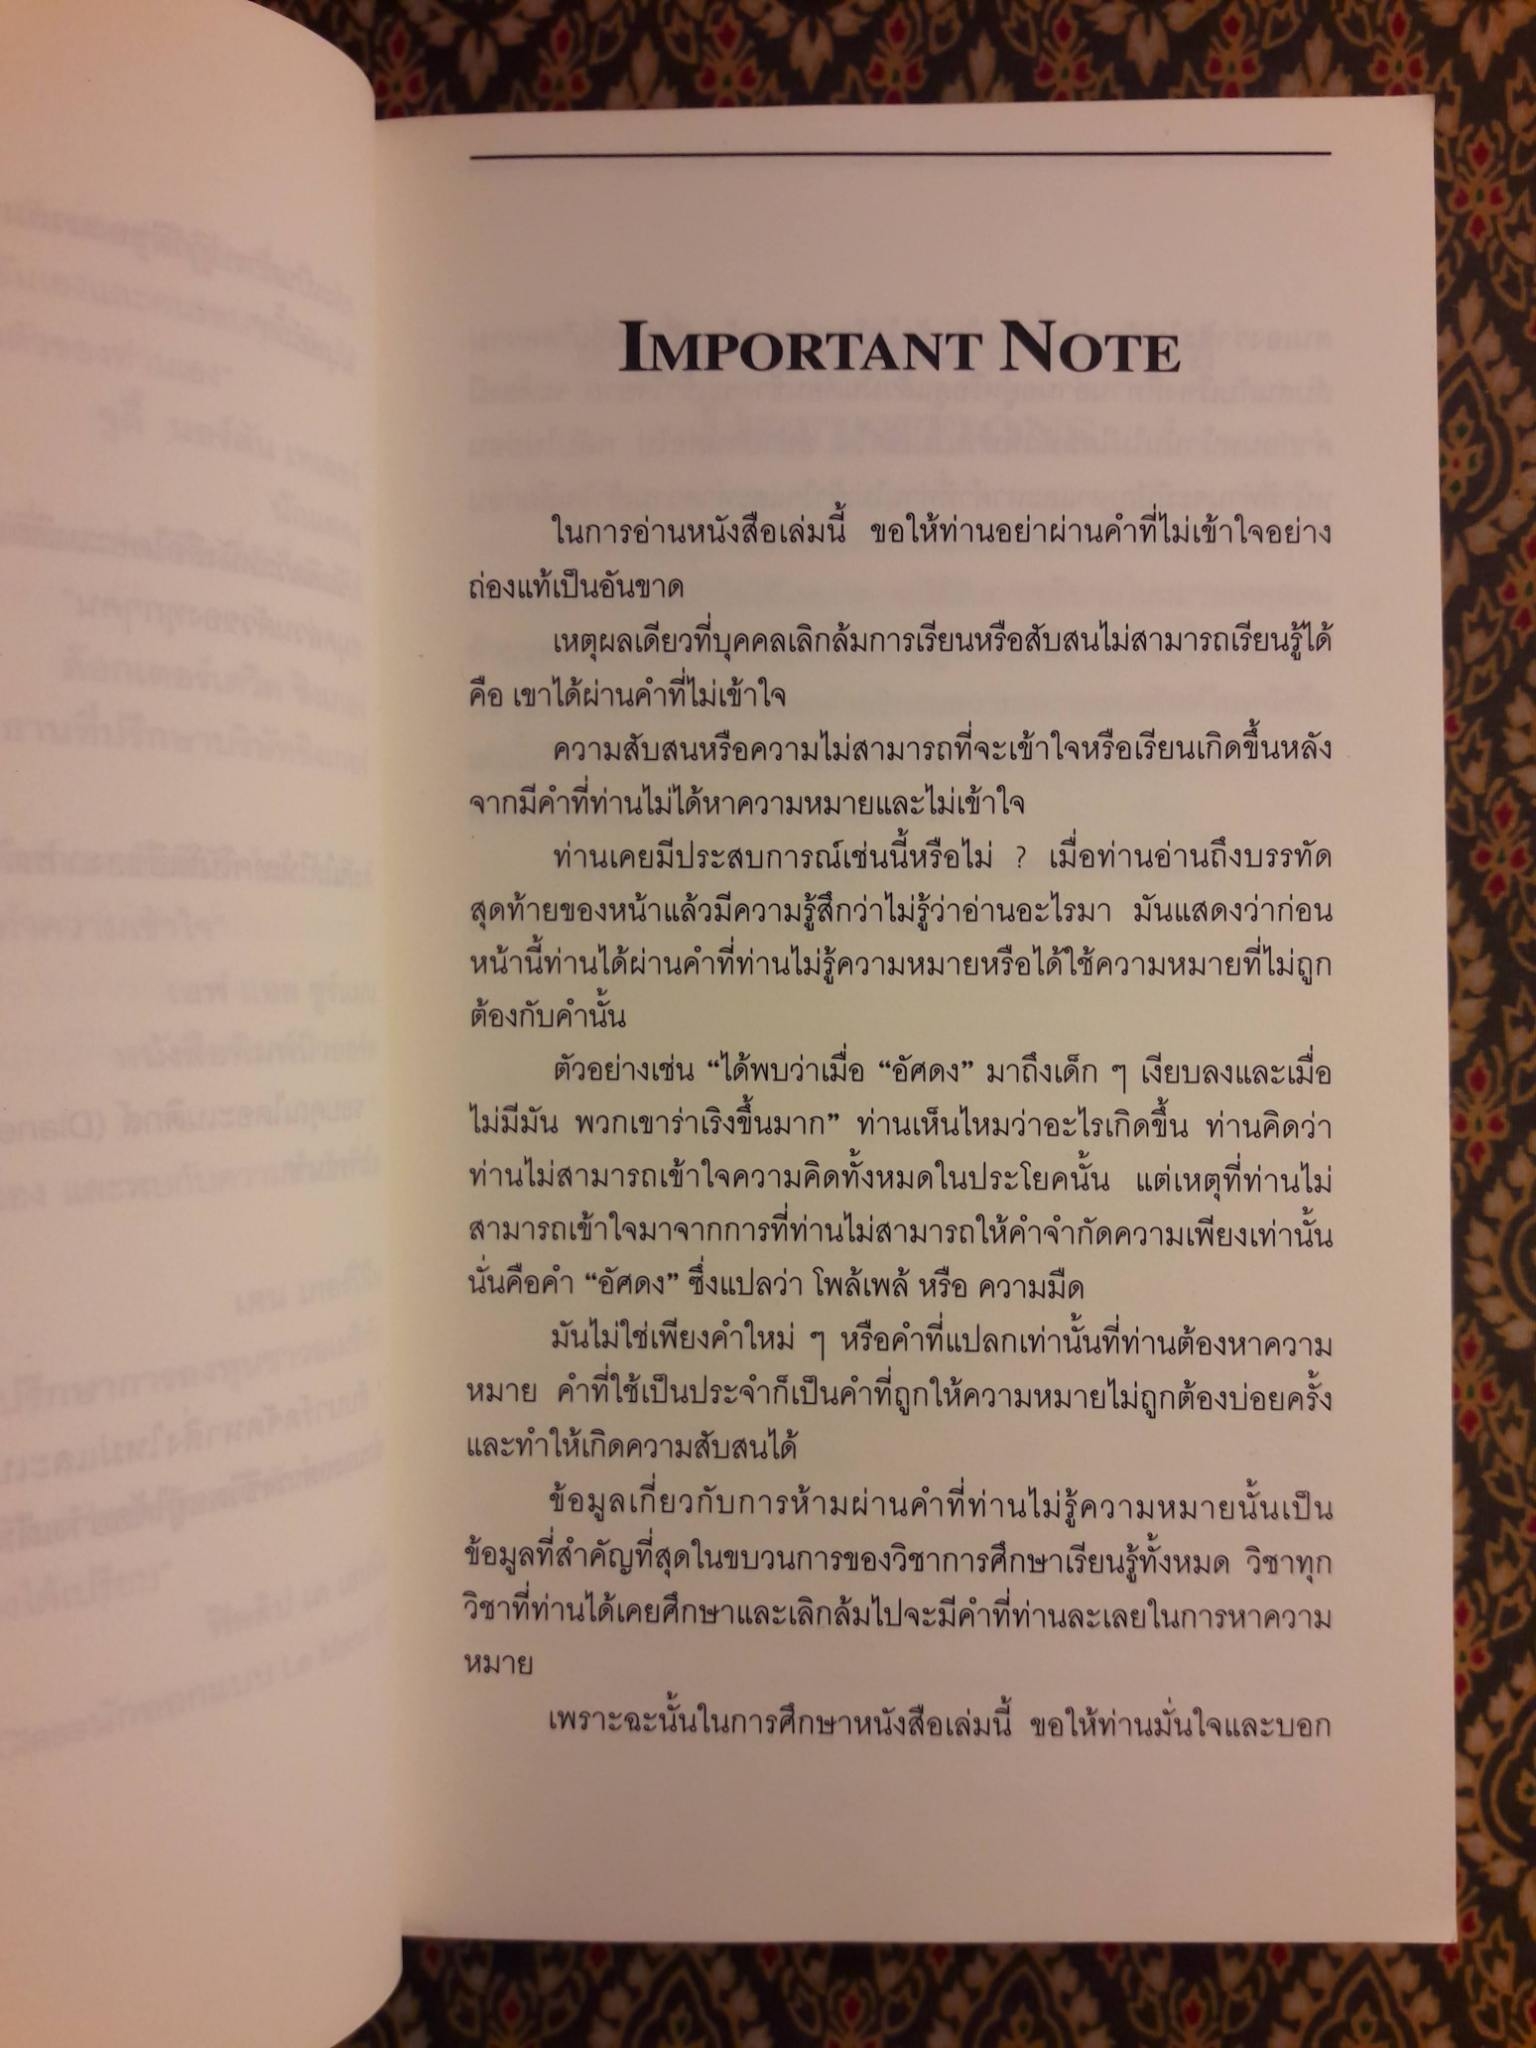 IMPORTANT NOTE
ในการอ่านหนังสือเล่มนี้ ขอให้ท่านอย่าผ่านคำที่ไม่เข้าใจอย่าง
ถ่องแท้เป็นอันขาด
เหตุผลเดียวที่บุคคลเลิกล้มการเรียนหรือสับสนไม่สามารถเรียนรู้ได้
คือ เขาได้ผ่านคำที่ไม่เข้าใจ
ความสับสนหรือความไม่สามารถที่จะเข้าใจหรือเรียนเกิดขึ้นหลัง
จากมีคำที่ท่านไม่ได้หาความหมายและไม่เข้าใจ
ท่านเคยมีประสบการณ์เช่นนี้หรือไม่ ? เมื่อท่านอ่านถึงบรรทัด
สุดท้ายของหน้าแล้วมีความรู้สึกว่าไม่รู้ว่าอ่านอะไรมา มันแสดงว่าก่อน
หน้านี้ท่านได้ผ่านคำที่ท่านไม่รู้ความหมายหรือได้ใช้ความหมายที่ไม่ถูก
ต้องกับคำนั้น
ตัวอย่างเช่น “ได้พบว่าเมื่อ “อัศดง” มาถึงเด็ก ๆ เงียบลงและเมื่อ
ไม่มีมัน พวกเขาร่าเริงขึ้นมาก” ท่านเห็นไหมว่าอะไรเกิดขึ้น ท่านคิดว่า
ท่านไม่สามารถเข้าใจความคิดทั้งหมดในประโยคนั้น แต่เหตุที่ท่านไม่
สามารถเข้าใจมาจากการที่ท่านไม่สามารถให้คำจำกัดความเพียงเท่านั้น
นั่นคือคำ “อัศดง” ซึ่งแปลว่า โพล้เพล้ หรือ ความมืด
มันไม่ใช่เพียงคำใหม่ ๆ หรือคำที่แปลกเท่านั้นที่ท่านต้องหาความ
หมาย คำที่ใช้เป็นประจำก็เป็นคำที่ถูกให้ความหมายไม่ถูกต้องบ่อยครั้ง
และทำให้เกิดความสับสนได้
ข้อมูลเกี่ยวกับการห้ามผ่านคำที่ท่านไม่รู้ความหมายนั้นเป็น
ข้อมูลที่สำคัญที่สุดในขบวนการของวิชาการศึกษาเรียนรู้ทั้งหมด วิชาทุก
วิชาที่ท่านได้เคยศึกษาและเลิกล้มไปจะมีคำที่ท่านละเลยในการหาความ
หมาย
เพราะฉะนั้นในการศึกษาหนังสือเล่มนี้ ขอให้ท่านมั่นใจและบอก